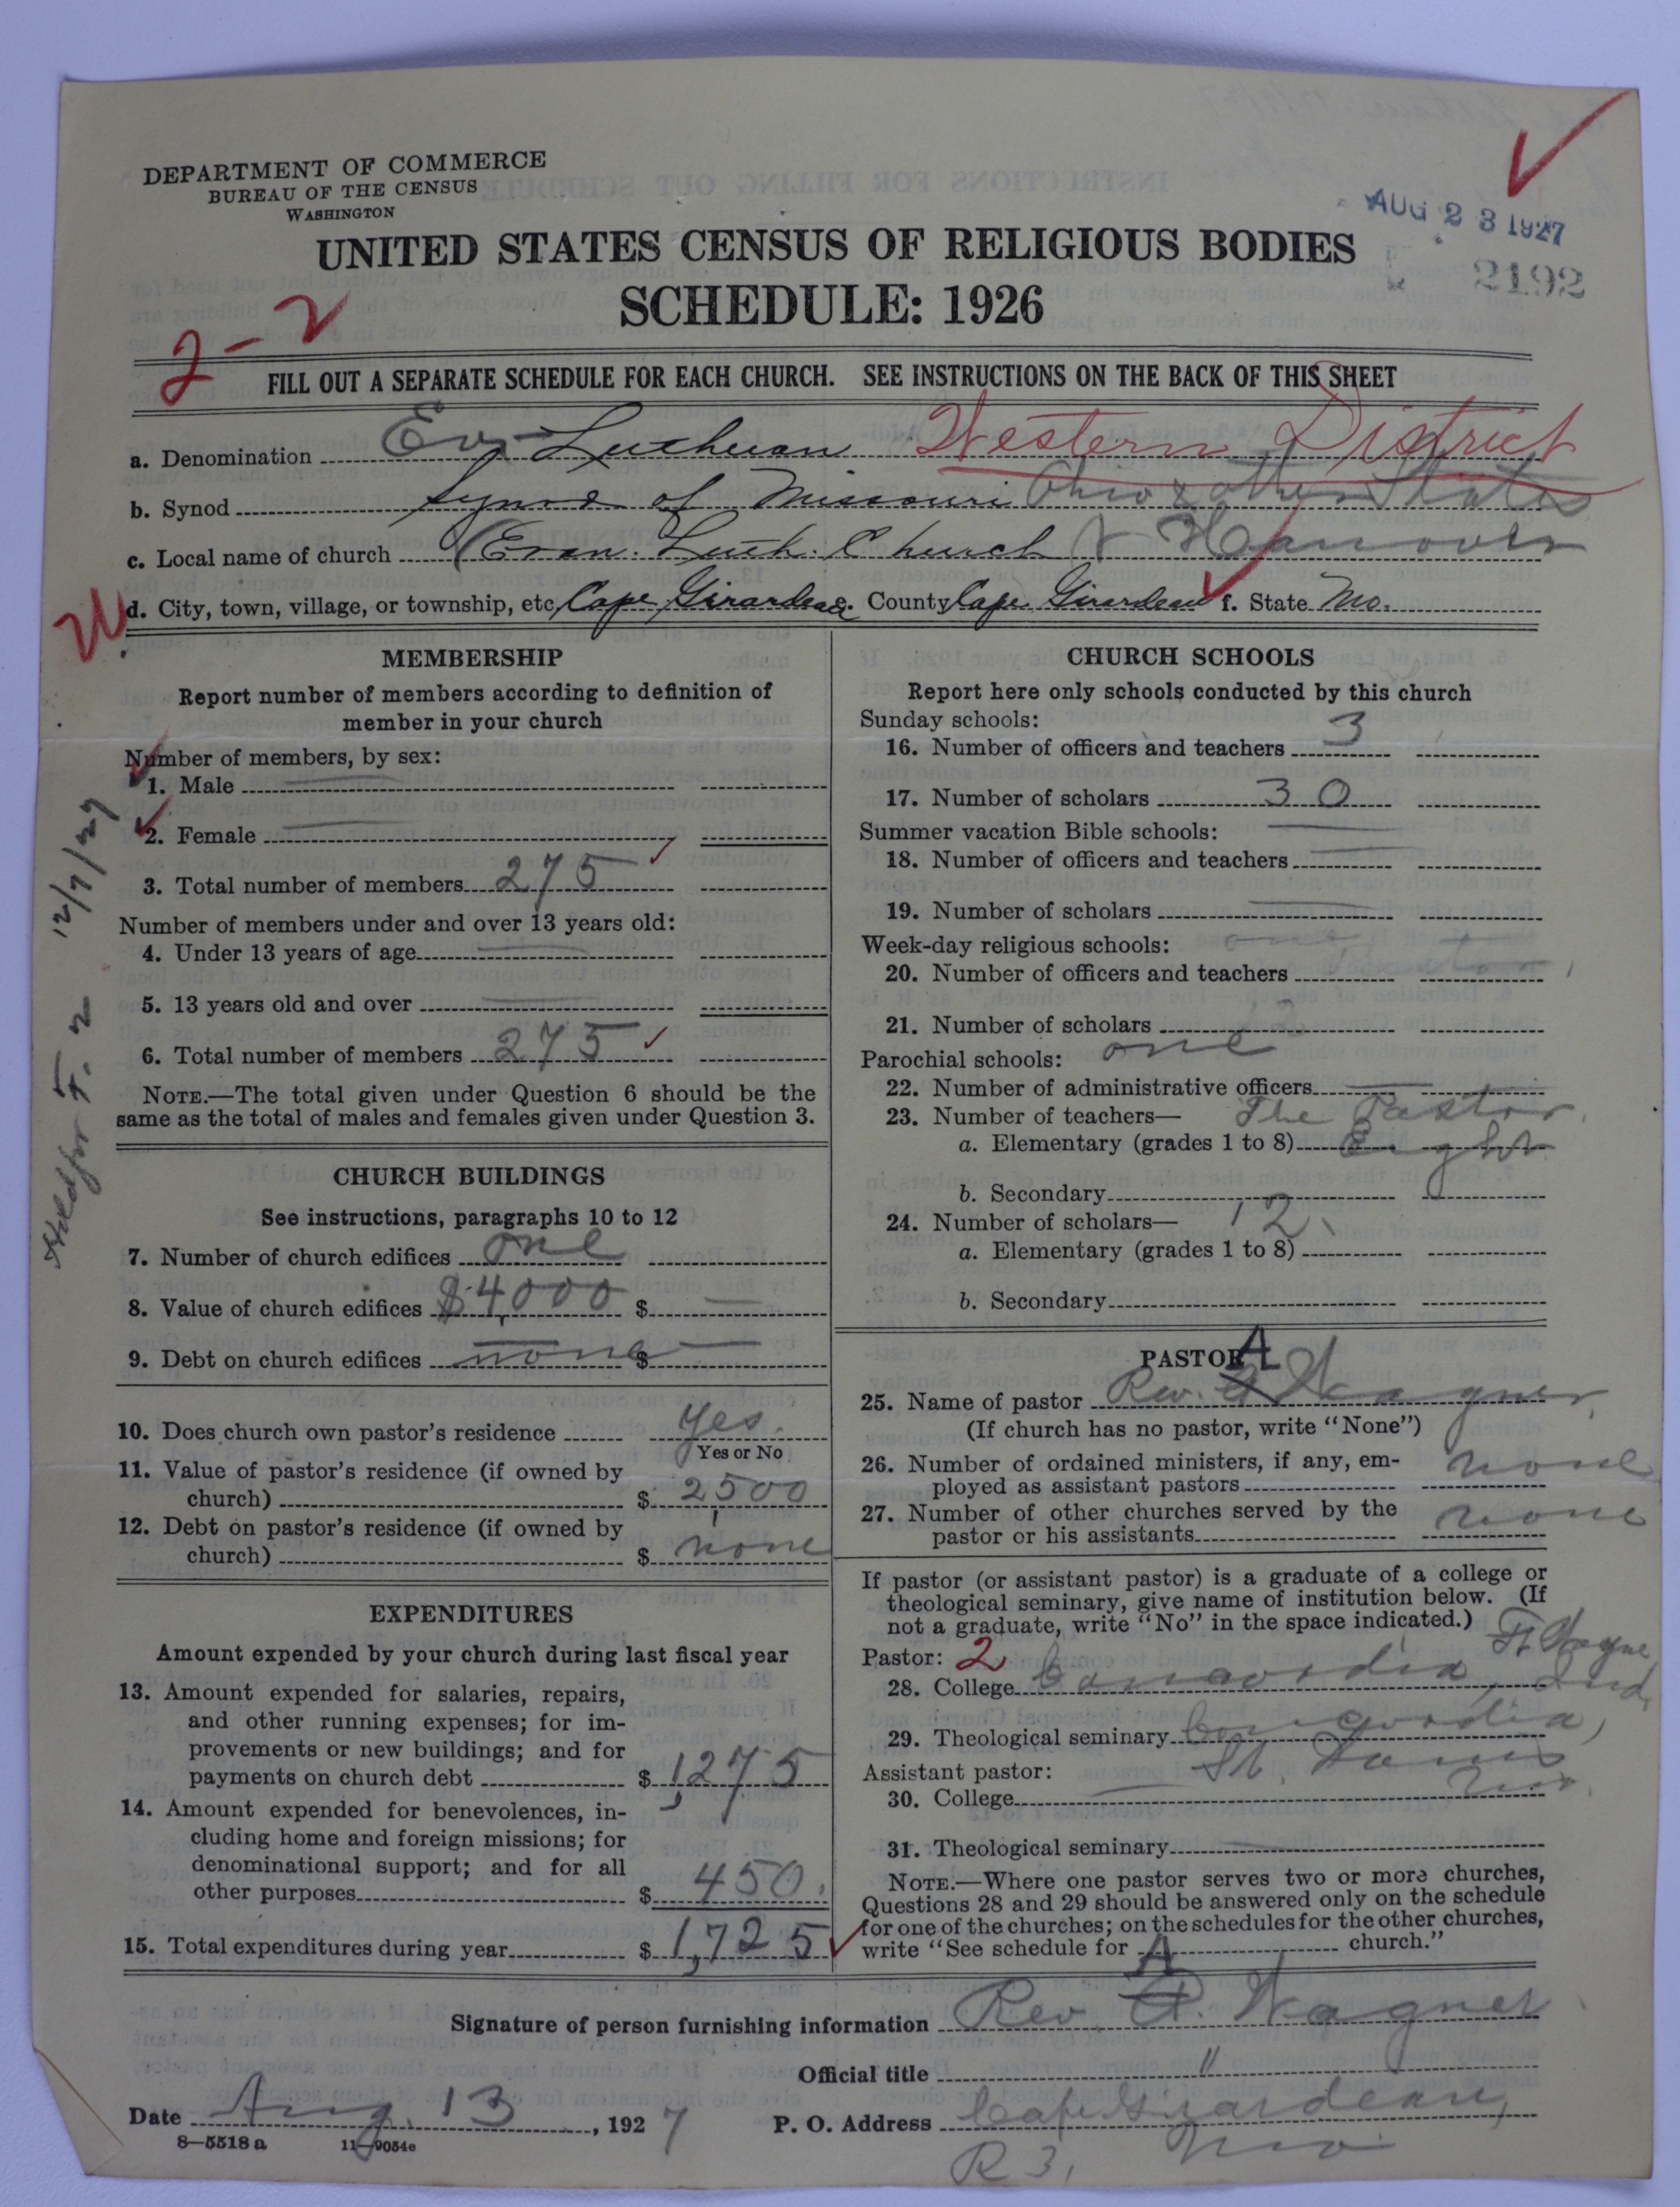 DEPARTMENT OF COMMERCE
BUREAU OF THE CENSUS
WASHINGTON
AUG 23 1927
2192
UNITED STATES CENSUS OF RELIGIOUS BODIES
SCHEDULE: 1926
2-2
FILL OUT A SEPARATE SCHEDULE FOR EACH CHURCH. SEE INSTRUCTIONS ON THE BACK OF THIS SHEET
a. Denomination Ev. Lutheran Western District
b. Synod Synod of Missouri Ohio & other States
c. Local name of church (Evan. Luth. Church Hanover
d. City, town, village, or township, etc. Cape Girardeau e. County Cape Girardeau f. State Mo.
MEMBERSHIP
Report number of members according to definition of
member in your church
Number of members, by sex:
1. Male
2. Female
3. Total number of members 275
Number of members under and over 13 years old:
4. Under 13 years of age
5. 13 years old and over
6. Total number of members 275
NOTE.—The total given under Question 6 should be the
same as the total of males and females given under Question 3.
12/7/27
CHURCH BUILDINGS
See instructions, paragraphs 10 to 12
7. Number of church edifices one
8. Value of church edifices $4,000 $
9. Debt on church edifices none $
10. Does church own pastor's residence Yes.
Yes or No
11. Value of pastor's residence (if owned by
church) $ 2,500
12. Debt on pastor's residence (if owned by
church) $ none
EXPENDITURES
Amount expended by your church during last fiscal year
13. Amount expended for salaries, repairs,
and other running expenses; for im-
provements or new buildings; and for
payments on church debt $ 1,275
14. Amount expended for benevolences, in-
cluding home and foreign missions; for
denominational support; and for all
other purposes $ 450.
15. Total expenditures during year $ 1,725
CHURCH SCHOOLS
Report here only schools conducted by this church
Sunday schools:
16. Number of officers and teachers 3
17. Number of scholars 30
Summer vacation Bible schools:
18. Number of officers and teachers
19. Number of scholars
Week-day religious schools:
20. Number of officers and teachers
21. Number of scholars 12
Parochial schools: one
22. Number of administrative officers
23. Number of teachers— The Pastor.
a. Elementary (grades 1 to 8) Eight
b. Secondary
24. Number of scholars— 12
a. Elementary (grades 1 to 8)
b. Secondary
PASTOR
25. Name of pastor Rev. A Wagner
(If church has no pastor, write "None")
26. Number of ordained ministers, if any, em-
ployed as assistant pastors none
27. Number of other churches served by the
pastor or his assistants none
If pastor (or assistant pastor) is a graduate of a college or
theological seminary, give name of institution below. (If
not a graduate, write "No" in the space indicated.)
Pastor: 2 Ft Wayne
28. College Concordia, Ind.
29. Theological seminary Concordia,
Assistant pastor: St. Louis
30. College Mo.
31. Theological seminary
NOTE.—Where one pastor serves two or more churches,
Questions 28 and 29 should be answered only on the schedule
for one of the churches; on the schedules for the other churches,
write "See schedule for church."
Signature of person furnishing information Rev. A. Wagner
Official title "
Date Aug. 13, 1927 P. O. Address Cape Girardeau,
R 3, Mo.
8—5518 a 11—9054e